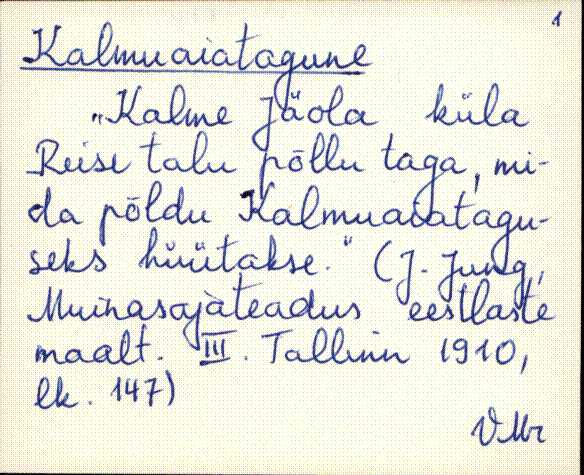 1
Kalmuaiatagune
"Kalme Jäola küla
Reise talu põllu taga, mi-
da põldu Kalmuaiatagu-
seks hüütakse." (J. Jung,
Muinasajateadus eestlaste
maalt. III. Tallinn 1910,
lk. 147)
VMr